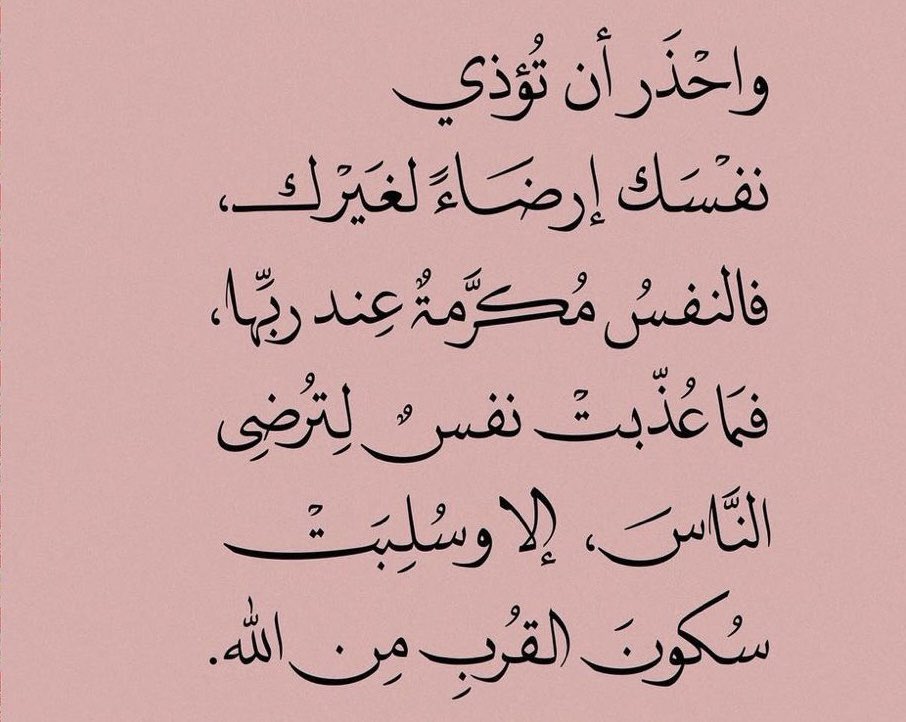 واحْذَر أن تُؤذي
نفْسَك إرضَاءً لغَيَرْك،
فالنفسُ مُكرَّمةٌ عِند ربِّها،
فمَا عُذّبتْ نفسٌ لِترُضِى
النَّاسَ، إلا وسُلِبَتْ
سُكونَ القرُبِ مِن الله.